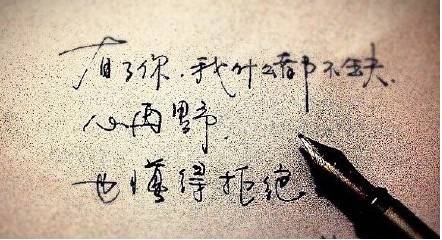 有了你，我什么都不缺，
心再野，
也懂得拒绝